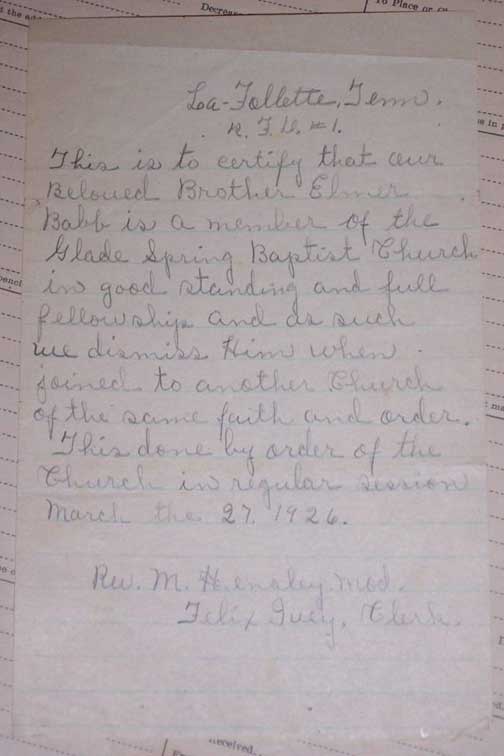 Decreas
To Place or
La-Follette, Tenn.
R. F. D. #1.
This is to certify that our
Beloved Brother Elmer
Babb is a member of the
Glade Spring Baptist Church
in good standing and full
fellowship and as such
we dismiss Him when
joined to another Church
of the same faith and order.
This done by order of the
Church in regular session
March the 27, 1926.
Rev. M. Hensley, Mod.
Felix Ivey, Clerk.
eceived.